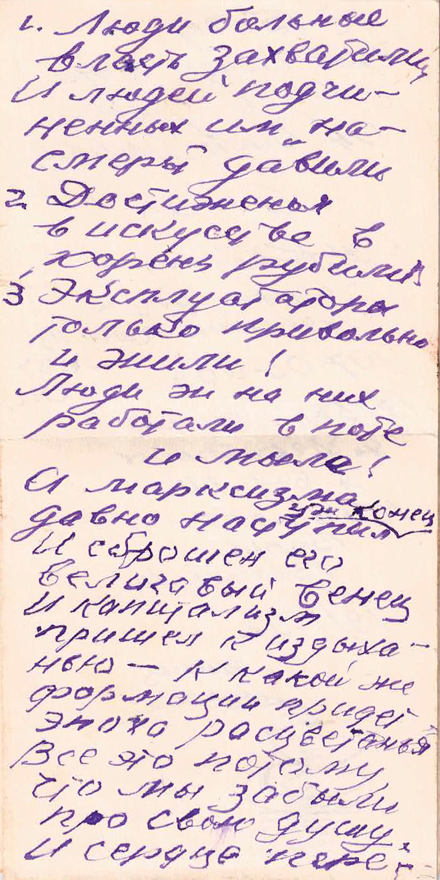 1. Люди больные
власть захватили,
И людей подчи-
ненных им на-
смерть давили
2. Достиженья
в искусстве в
корень рубили!
3 Эксплуататоры
только привольно
и жили!
Люди ж на них
работали в поте
и мыле!
А марксизма
уж конец
давно наступил
И сброшен его
величавый венец
И капитализм
пришел к издыха-
нью — К какой же
формации придет
эпоха расцветанья
Все это потому,
что мы забыли
про свою душу,
И сердца пере-